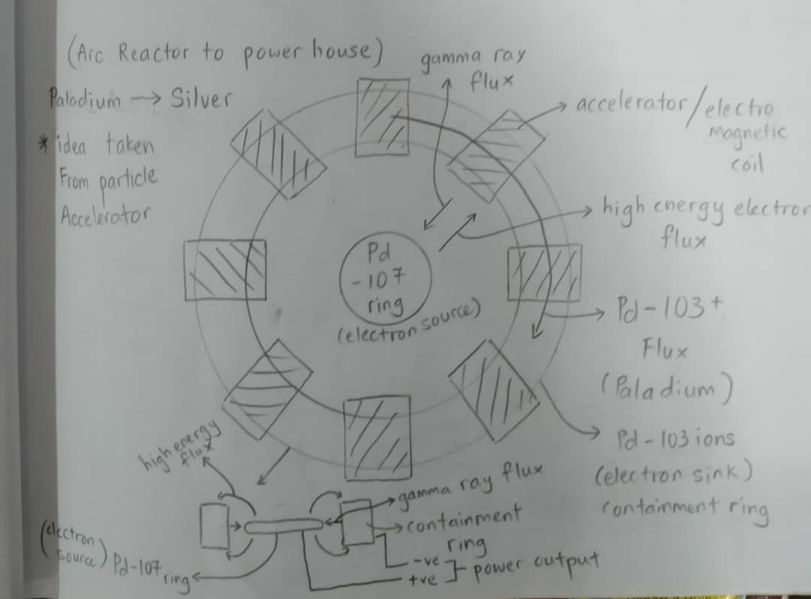 (Arc Reactor to power house)
Paladium → Silver
* idea taken
From particle
Accelerator
gamma ray
flux
accelerator/electro
magnetic
coil
high energy electron
flux
Pd
-107
ring
(electron source)
Pd-103+
Flux
(Paladium)
Pd-103 ions
(electron sink)
containment ring
high energy
flux
gamma ray flux
containment
ring
(electron
source) Pd-107
ring
-ve
+ve
power output